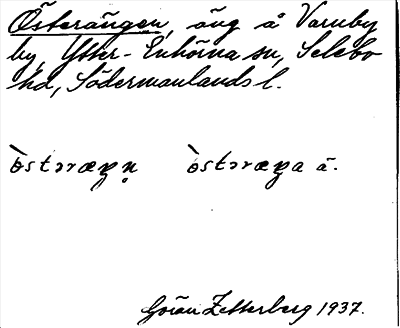 Österängen, äng å Varnby
by, Ytter-Enhörna sn, Selebo
hd, Södermanlands l.
òstəræŋn̥ òstəræŋa ä.
Göran Zetterberg 1937.